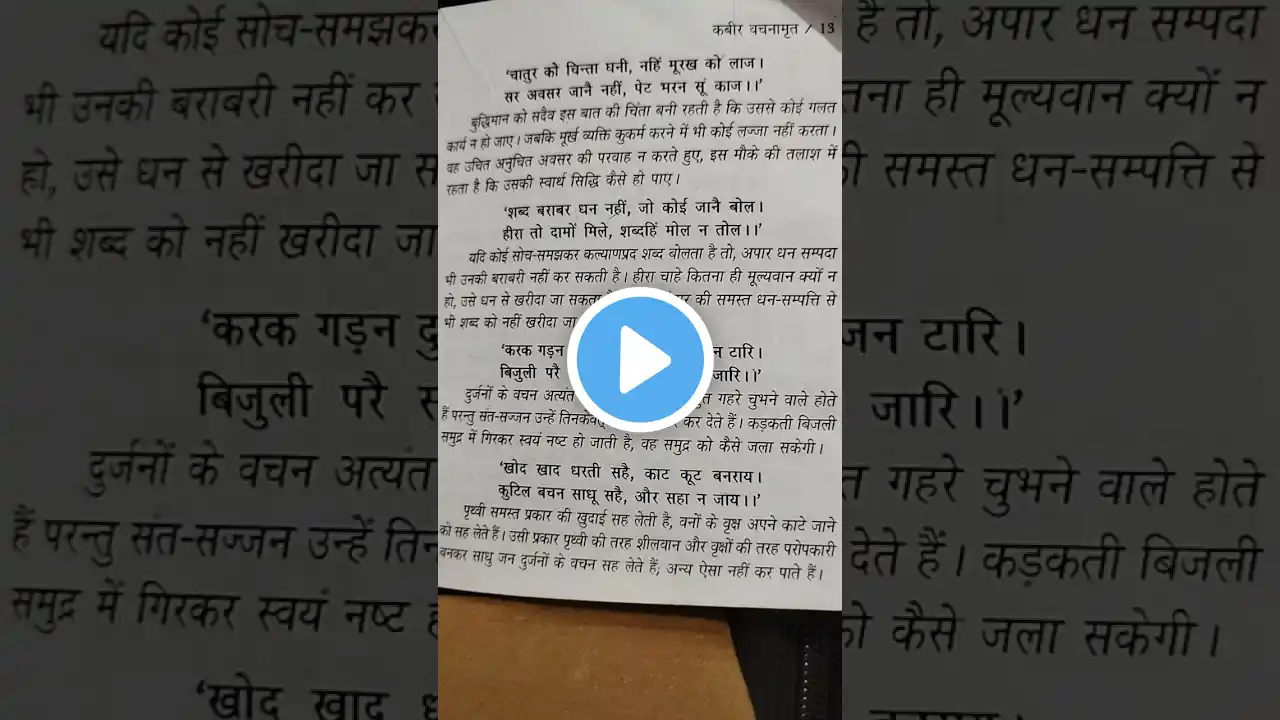 कबीर वचनामृत / 13
'चातुर को चिन्ता घनी, नहिं मूरख को लाज।
सर अवसर जानै नहीं, पेट भरन सूं काज।।'
बुद्धिमान को सदैव इस बात की चिंता बनी रहती है कि उससे कोई गलत
कार्य न हो जाए। जबकि मूर्ख व्यक्ति कुकर्म करने में भी कोई लज्जा नहीं करता।
वह उचित अनुचित अवसर की परवाह न करते हुए, इस मौके की तलाश में
रहता है कि उसकी स्वार्थ सिद्धि कैसे हो पाए।
'शब्द बराबर धन नहीं, जो कोई जानै बोल।
हीरा तो दामों मिले, शब्दहिं मोल न तोल।।'
यदि कोई सोच-समझकर कल्याणप्रद शब्द बोलता है तो, अपार धन सम्पदा
भी उनकी बराबरी नहीं कर सकती है। हीरा चाहे कितना ही मूल्यवान क्यों न
हो, उसे धन से खरीदा जा सकता की समस्त धन-सम्पत्ति से
भी शब्द को नहीं खरीदा जा
'करक गड़न न टारि।
बिजुली परै जारि।।'
दुर्जनों के वचन अत्यंत गहरे चुभने वाले होते
हैं परन्तु संत-सज्जन उन्हें कर देते हैं। कड़कती बिजली
समुद्र में गिरकर स्वयं नष्ट हो जाती है, वह समुद्र को कैसे जला सकेगी।
'खोद खाद धरती सहै, काट कूट बनराय।
कुटिल बचन साधू सहै, और सहा न जाय।।'
पृथ्वी समस्त प्रकार की खुदाई सह लेती है, वनों के वृक्ष अपने काटे जाने
को सह लेते हैं। उसी प्रकार पृथ्वी की तरह शीलवान और वृक्षों की तरह परोपकारी
बनकर साधु जन दुर्जनों के वचन सह लेते हैं, अन्य ऐसा नहीं कर पाते हैं।